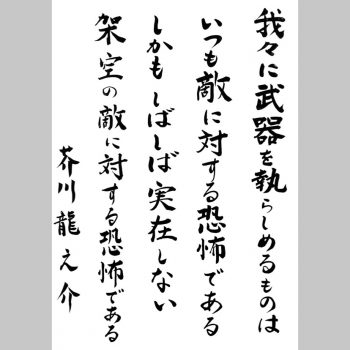 我々に武器を執らしめるものは
いつも敵に対する恐怖である
しかもしばしば実在しない
架空の敵に対する恐怖である
芥川龍之介